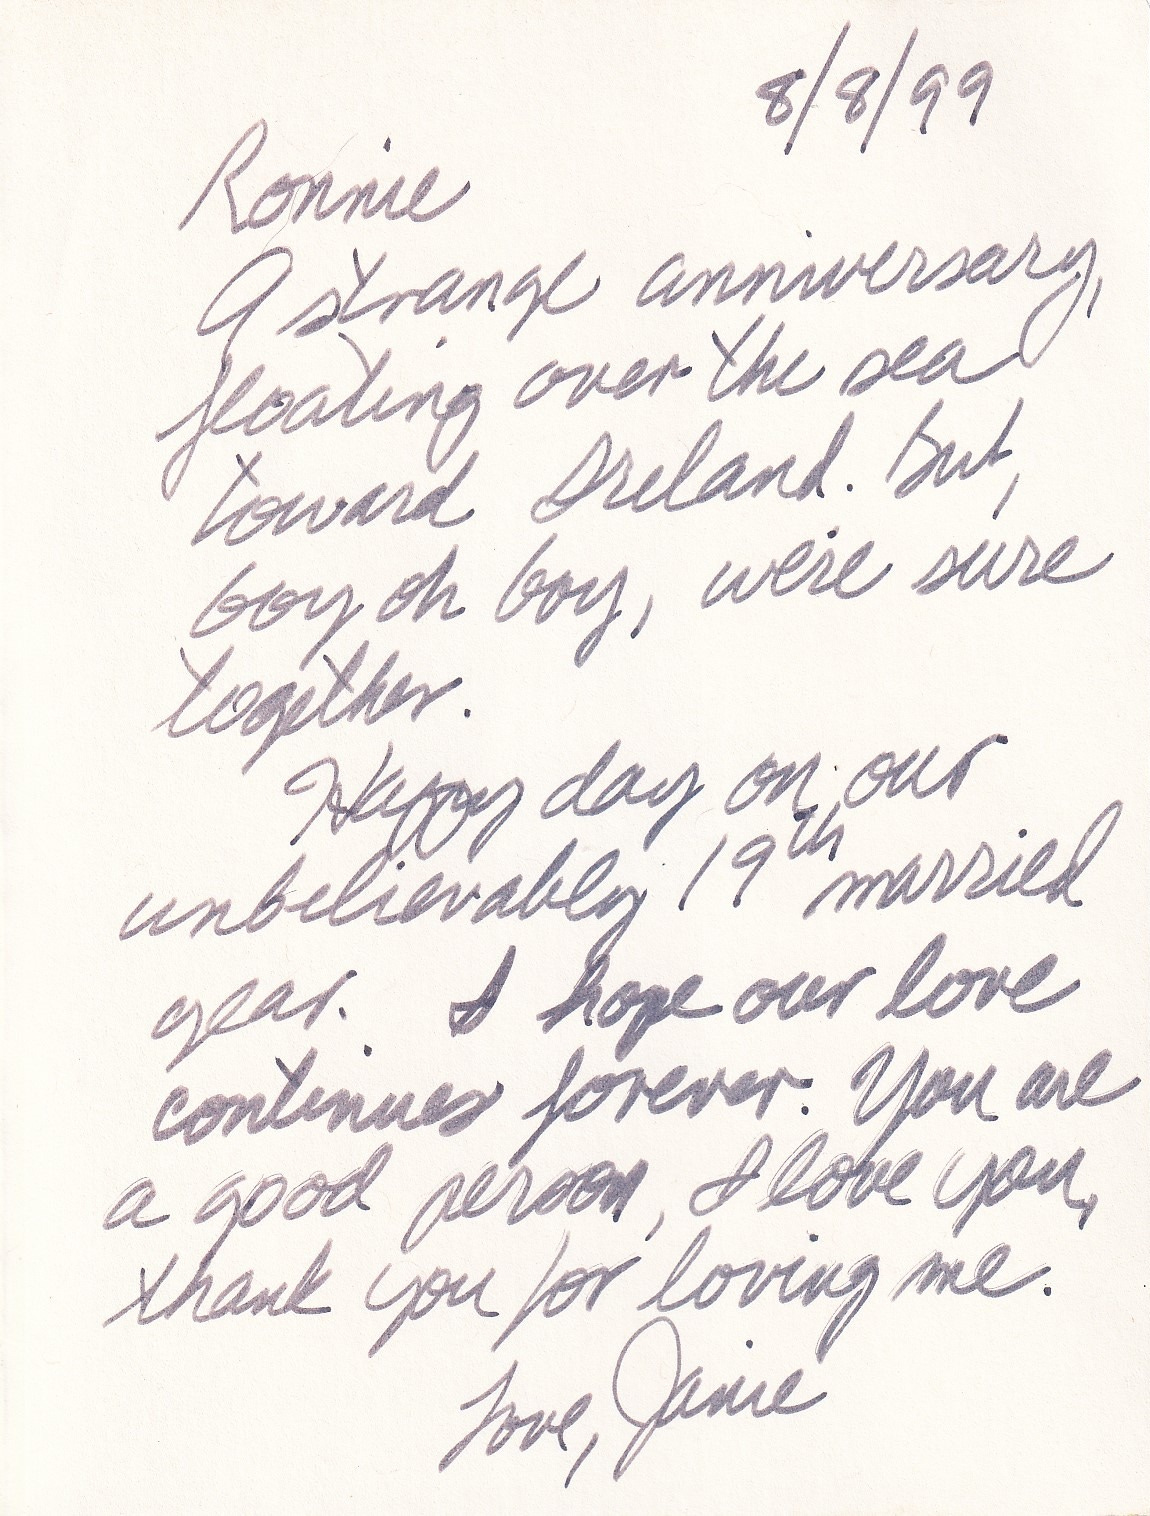 8/8/99
Ronnie
A strange anniversary,
floating over the sea
toward Ireland. But,
boy oh boy, we're sure
together.
Happy day on our
unbelievably 19th married
year. I hope our love
continues forever. You are
a good person, I love you,
thank you for loving me.
Love, Janie